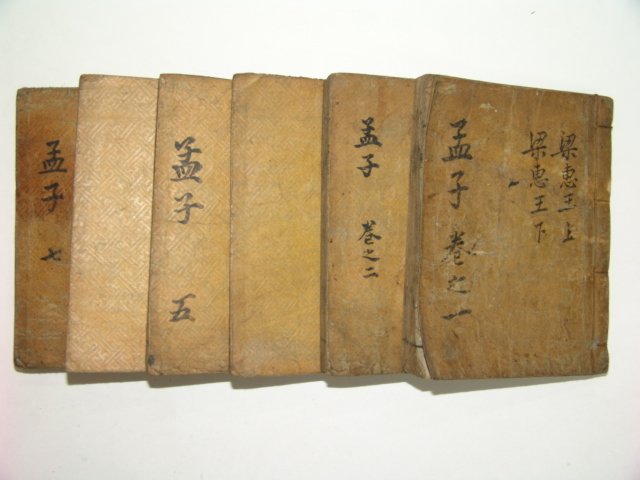 梁惠王上
梁惠王下
孟子 卷之一
孟子 卷之二
孟子 五
孟子 七